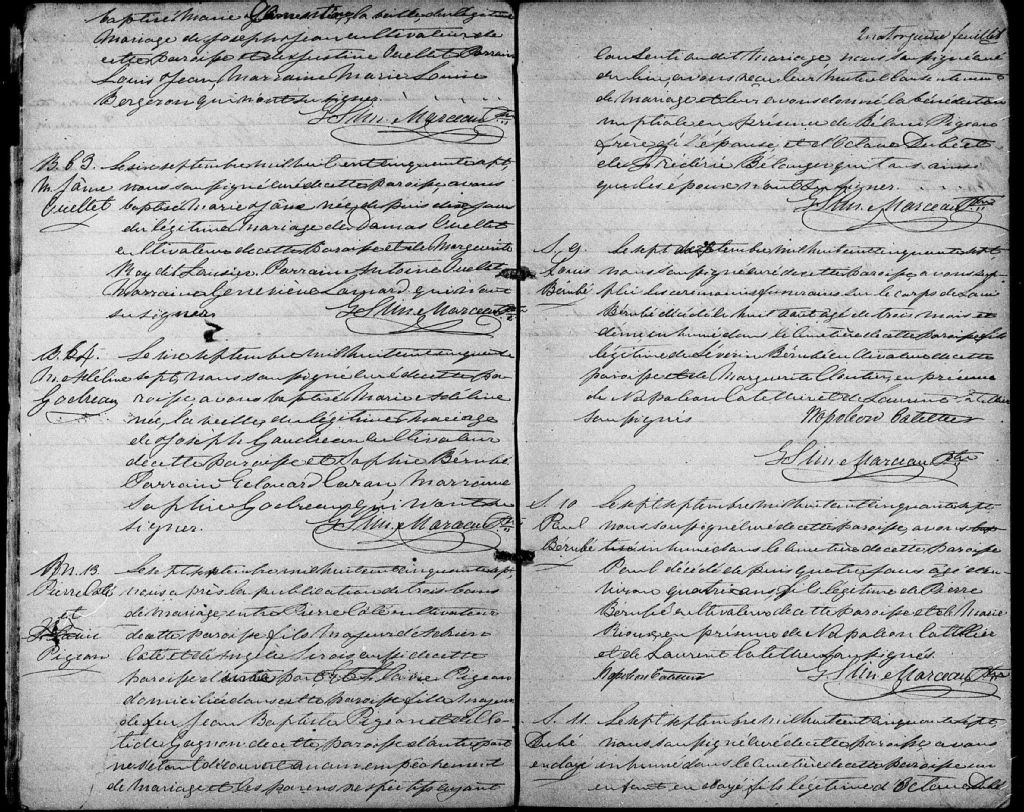 baptisé Marie Clementine, la veille du légitime
mariage de Joseph Jean cultivateur de
cette paroisse et de Justine Ouellet Parrain
Louis Jean Marraine Marie Louise
Bergeron qui n'ont su signer.
Marceau Ptre
B. 63. Le six septembre mil huit cent cinquante sept,
M. Jane nous soussigné curé de cette paroisse avons
Ouellet baptisé Marie Jane née depuis deux jours
du légitime mariage de Damas Ouellet
cultivateur de cette paroisse et de Marguerite
Roy dit Lausier. Parrain Antoine Ouellet
Marraine Genevière qui n'ont
su signer.
Marceau Ptre
B. 64. Le six septembre mil huit cent cinquante
M. Adéline sept, nous soussigné curé de cette pa-
Godreau roisse, avons baptisé Marie Adéline
née la veille du légitime mariage
de Joseph Gaudreau cultivateur
de cette paroisse et Sophie Bérubé
Parrain Edouard Caran Marraine
Sophie Godreau qui n'ont su
signer.
Marceau Ptre
M. 13. Le sept septembre mil huit cent cinquante sept,
Pierre Coté nous après la publication de trois bans
et de mariage, entre Pierre Coté cultivateur
de cette paroisse fils majeur de
Pigeon Coté et de Angele Sirois aussi de cette
paroisse d'une part, et Pigeon
domiciliée dans cette paroisse fille majeure
de feu Jean Baptiste Pigeon et de Clo-
tide Gagnon de cette paroisse d'autre part
ne s'étant découvert aucun empêchement
de mariage et les parens respectifs ayant
Quatorzième feuillet
consenti au dit mariage nous soussigné curé
du lieu, avons reçu leur mutuel consentement
de mariage et leur avons donné la bénédiction
nuptiale en présence de Pigeon
frère de l'épouse, et d'Octave Dubé et
de Frédéric Bélanger qui tous ainsi
que les époux n'ont su signer.
Marceau Ptre
S. 9. Le sept septembre mil huit cent cinquante sept
Louis nous soussigné curé de cette paroisse, avons sup-
Bérubé pléé les cérémonies funéraires sur le corps de Louis
Bérubé décédé le huit aout agé de trois mois et
demi inhumé dans le cimetière de cette paroisse fils
légitime de Séverin Bérubé cultivateur de cette
paroisse et de Marguerite Cloutier, en présence
de Napoléon Letellier et de Laurent Letellier
soussignés Napoleon Letellier
Marceau Ptre
S. 10 Le sept septembre mil huit cent cinquante sept
Paul nous soussigné curé de cette paroisse, avons
Bérubé inhumé dans le cimetière de cette paroisse
Paul décédé depuis quatre jours agé d'en-
viron quatre ans fils légitime de Pierre
Bérubé cultivateur de cette paroisse et de Marie
Rioux, en présence de Napoléon Letellier
et de Laurent Letellier soussignés
Napoleon Letellier Marceau Ptre
S. 11. Le sept septembre mil huit cent cinquante sept
Dubé nous soussigné curé de cette paroisse avons
ondoyé inhumé dans le cimetière de cette paroisse un
enfant ondoyé fils légitime d'Octave Dubé